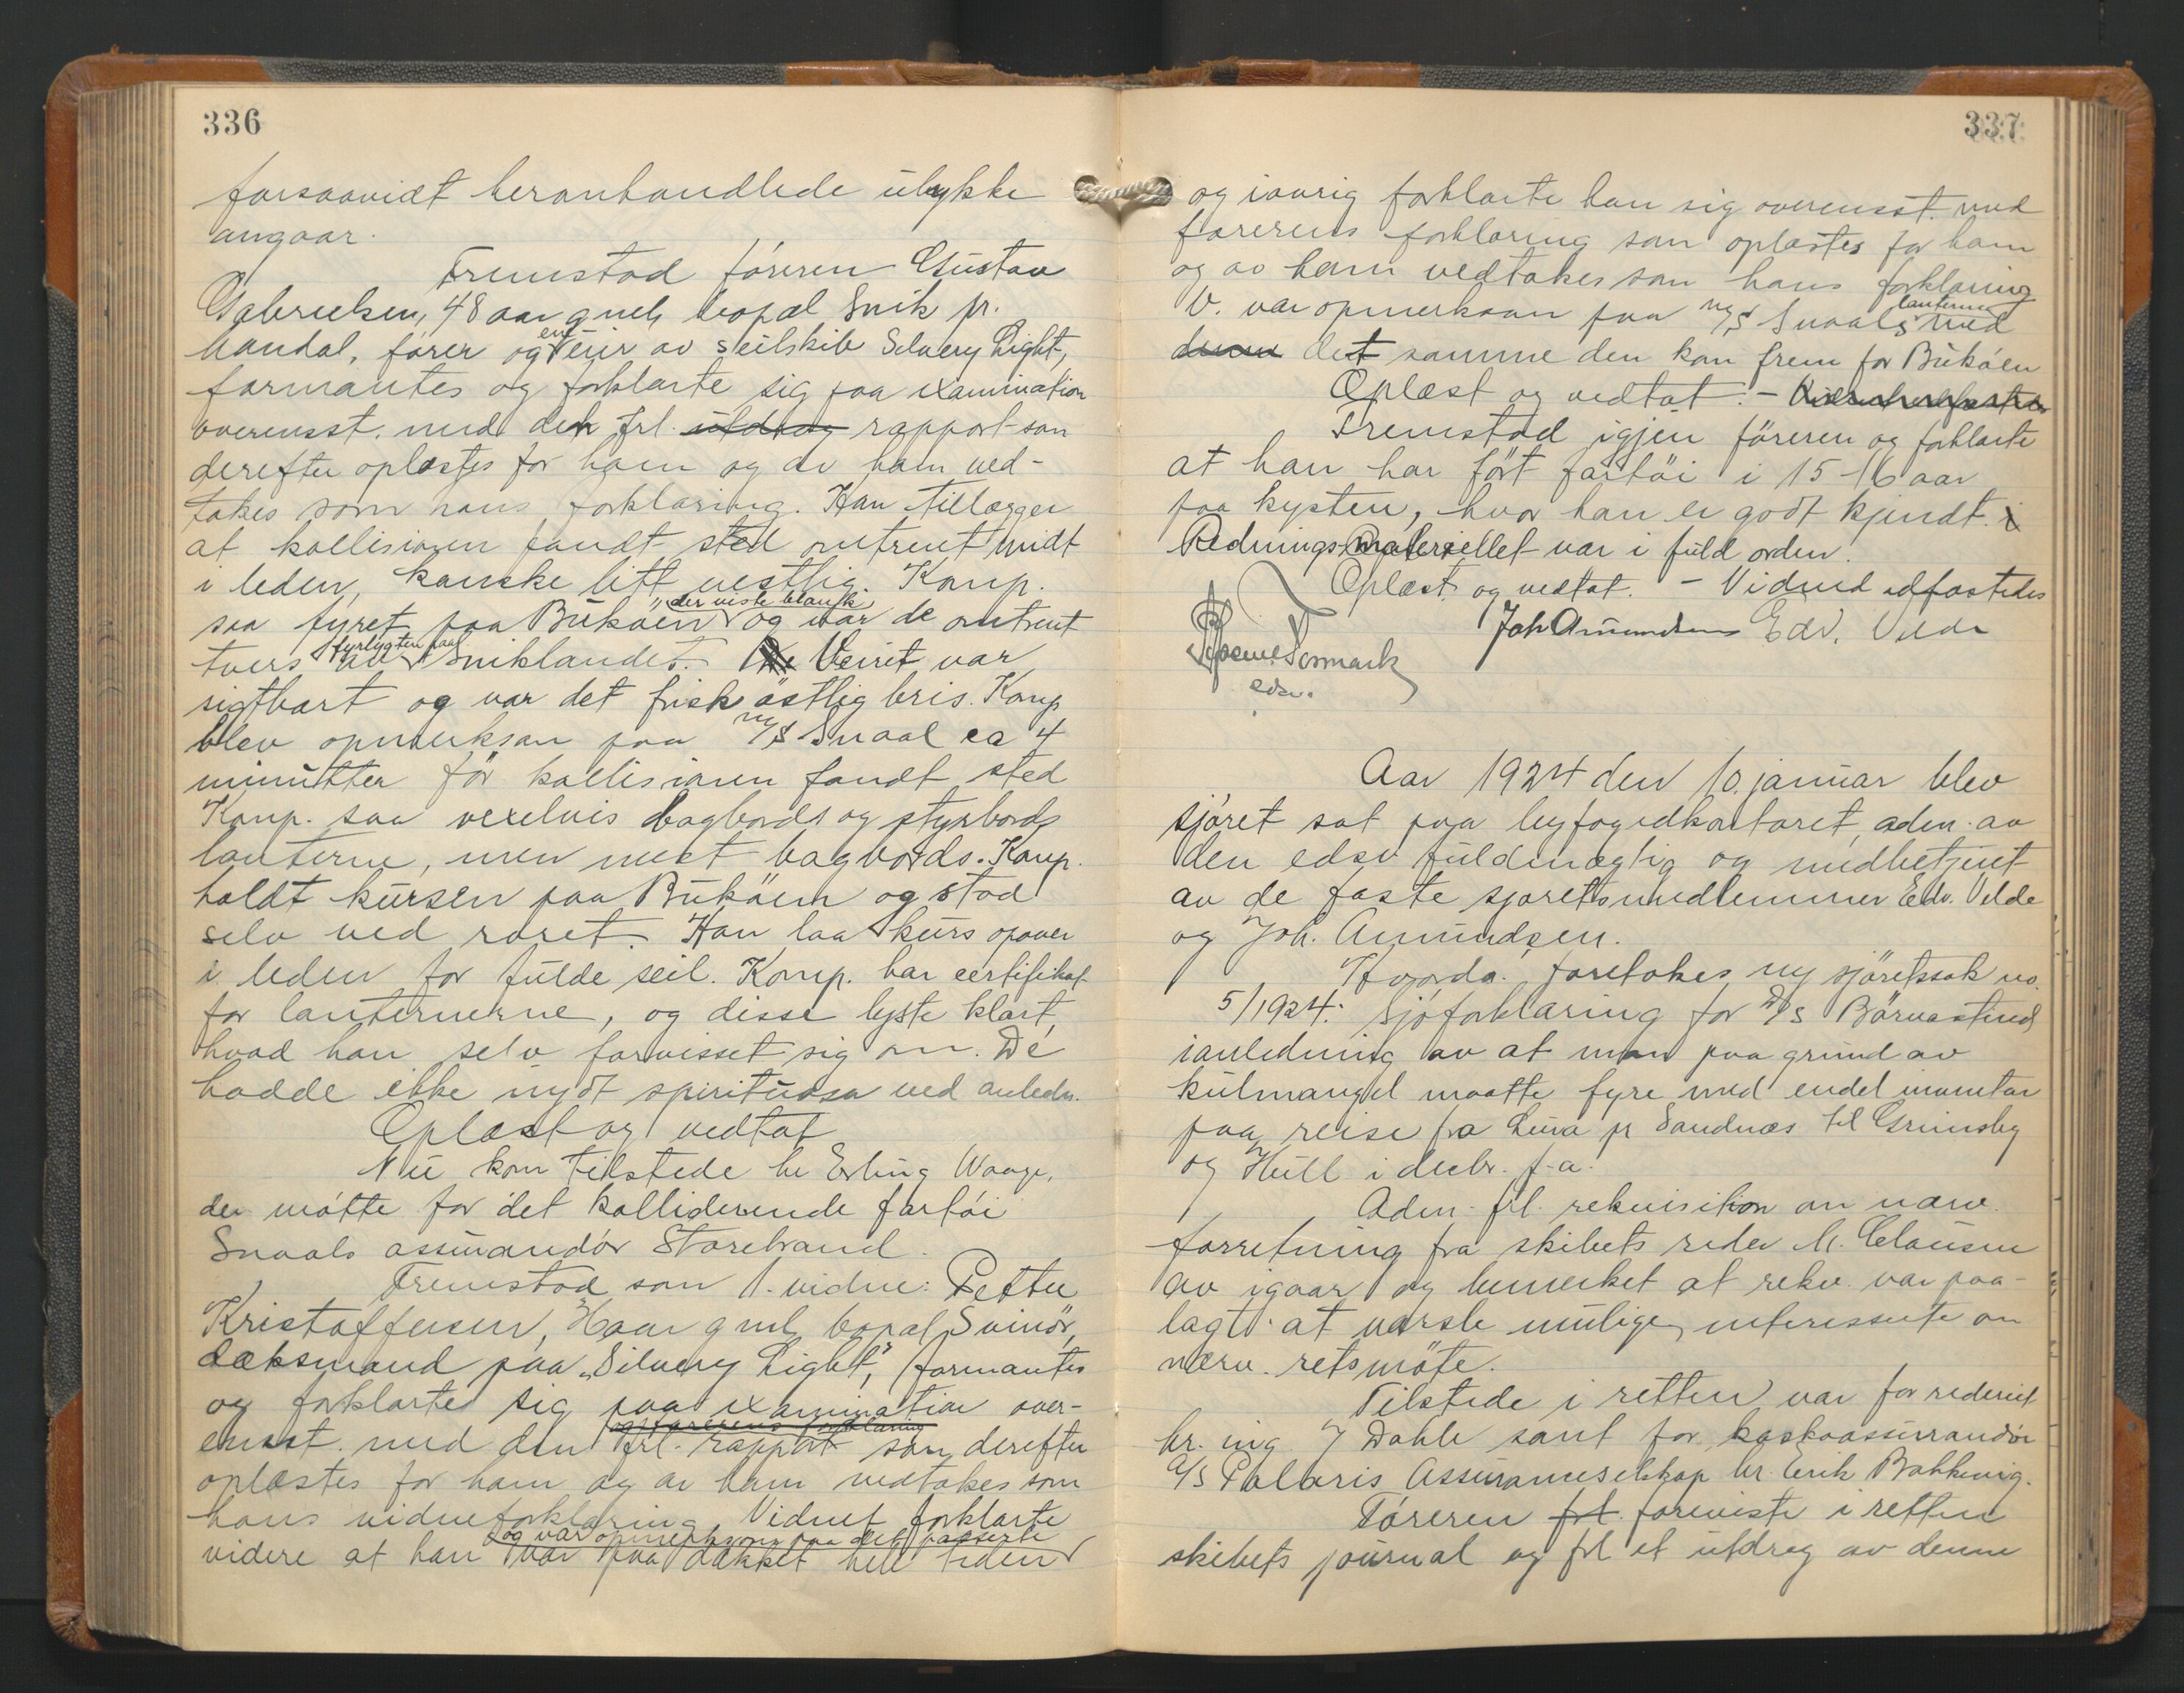 336
forsaavidt heromhandlede ulykke
angaar.
Fremstod föreren Gustav
Gabrielsen, 48 aar gml, bopæl Snik pr.
Mandal, förer og eneeier av seilskib Silvery Light,
formantes og forklarte sig paa examination
overensst. med den frl. utdrag rapport som
derefter oplæstes for ham og av ham ved-
takes som hans forklaring. Han tillægger
at kollisionen fandt sted omtrent midt
i leden, kanske litt vestlig. Komp.
der viste blank
saa fyret paa Buköen og var de omtrent
fyrlygten paa
tvers av Sniklandet. Veiret var
sigtbart og var det frisk östlig bris. Komp
blev opmerksom paa M/S Snaal ca 4
minutter för kollisionen fandt sted
Komp. saa vexelvis bagbords og styrbords
lanterne, men mest bagbords. Komp.
holdt kursen paa Buköen og stod
selv ved roret. Han laa kurs opover
i leden for fulde seil. Komp. har certifikat
for lanternerne, og disse lyste klart,
hvad han selv forvisset sig om. De
hadde ikke nydt spirituosa ved anledn.
Oplæst og vedtat
Nu kom tilstede hr Erling Waage,
der mötte for det kolliderende fartöi
Snaals assurandör Storebrand.
Fremstod som 1. vidne: Petter
Kristoffersen, aar gml, bopæl Svinör,
dæksmand paa "Silvery Light", formantes
og forklarte sig paa examination over-
og förerens forklaring
ensst. med den frl. rapport som derefter
oplæstes for ham og av ham vedtakes som
hans vidneforklaring. Vidnet forklarte
og var opmerksom paa det passerte
videre at han var paa dækket hele tiden
337
og iövrig forklarte han sig overensst. med
förerens forklaring som oplæstes for ham
og av ham vedtakes som hans forklaring
lanterne
V. var opmerksom paa M/S Snaals med
det samme den kom frem for Buköen
Oplæst og vedtat. -
Fremstod igjen föreren og forklarte
at han har fört fartöi i 15-16 aar
paa kysten, hvor han er godt kjendt. i
Rednings-Materiellet var i fuld orden.
Oplæst og vedtat. - Vidnet edfæstedes
Joh Amundsen Edv. Velde
edsv.
Aar 1924 den 10. januar blev
sjöret sat paa byfogedkontoret, adm. av
den edsv fuldmægtig og medbetjent
av de faste sjöretsmedlemmer Edv. Velde
og Joh. Amundsen.
Hvorda: foretokes ny sjöretssak no.
5/1924: Sjöforklaring for D/S Börvastind
ianledning av at man paa grund av
kulmangel maatte fyre med endel inventar
paa reise fra Lura pr Sandnæs til Grimsby
og Hull i decbr. f.a.
Adm. frl. rekvisition om nærv.
forretning fra skibets reder M. Clausen
av igaar og bemerket at rekv. var paa-
lagt at varsle mulige interesserte om
nærv. retsmöte.
Tilstede i retten var for rederiet
hr. ing. J Dahle samt for kaskoassurandör
A/S Polaris Assuranceselskap hr. Erik Bakkevig.
Föreren frl. foreviste i retten
skibets journal og frl et utdrag av denne